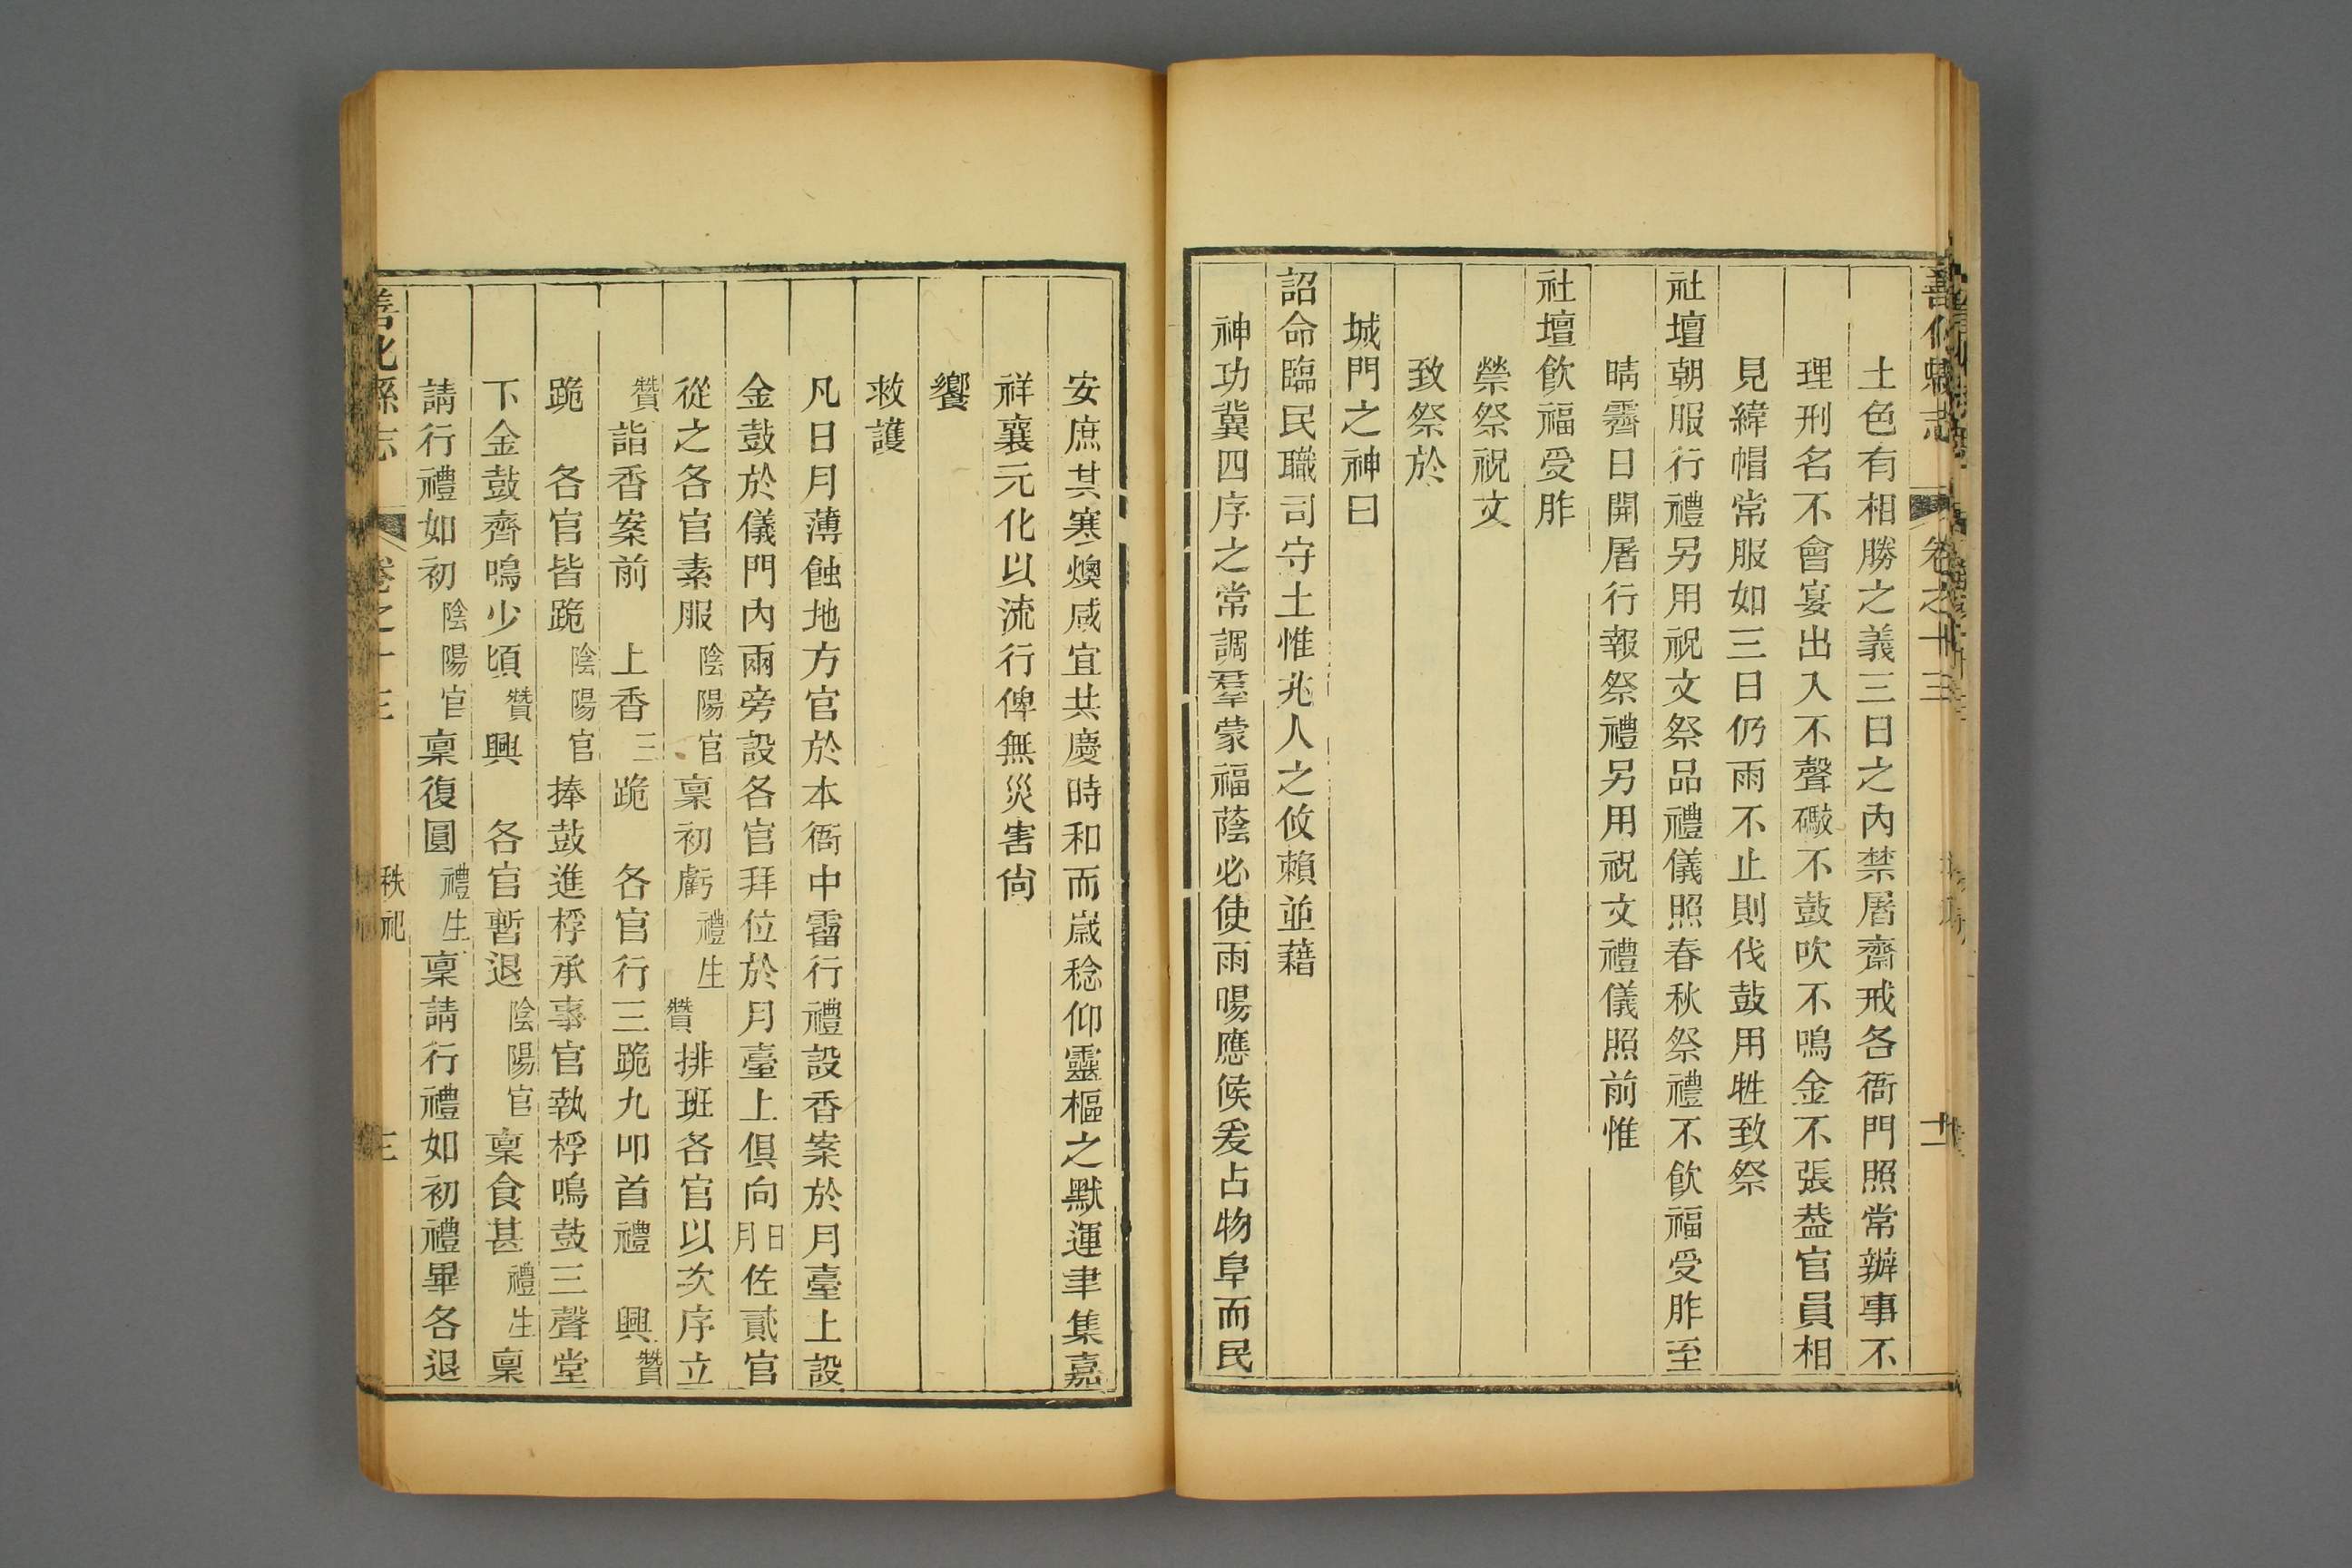 善化縣志 卷之十三
土色有相勝之義三日之內禁屠齋戒各衙門照常辦事不
理刑名不會宴出入不聲礮不鼓吹不鳴金不張葢官員相
見緯帽常服如三日仍雨不止則伐鼓用牲致祭
社壇朝服行禮另用祝文祭品禮儀照春秋祭禮不飲福受胙至
晴霽日開屠行報祭禮另用祝文禮儀照前惟
社壇飲福受胙
禜祭祝文
致祭於
城門之神曰
詔命臨民職司守土惟兆人之攸賴並藉
神功冀四序之常調羣蒙福蔭必使雨暘應候爰占物阜而民
安庶其寒燠咸宜共慶時和而歲稔仰靈樞之默運聿集嘉
祥襄元化以流行俾無災害尙
饗
救護
凡日月薄蝕地方官於本衙中霤行禮設香案於月臺上設
金鼓於儀門內兩旁設各官拜位於月臺上俱向日月佐貳官
從之各官素服陰陽官稟初虧禮生贊排班各官以次序立
贊詣香案前 上香三跪 各官行三跪九叩首禮 興贊
跪 各官皆跪陰陽官捧鼓進桴承事官執桴鳴鼓三聲堂
下金鼓齊鳴少頃贊興 各官暫退陰陽官稟食甚禮生稟
請行禮如初陰陽官稟復圓禮生稟請行禮如初禮畢各退
善化縣志 卷之十三 秩祀